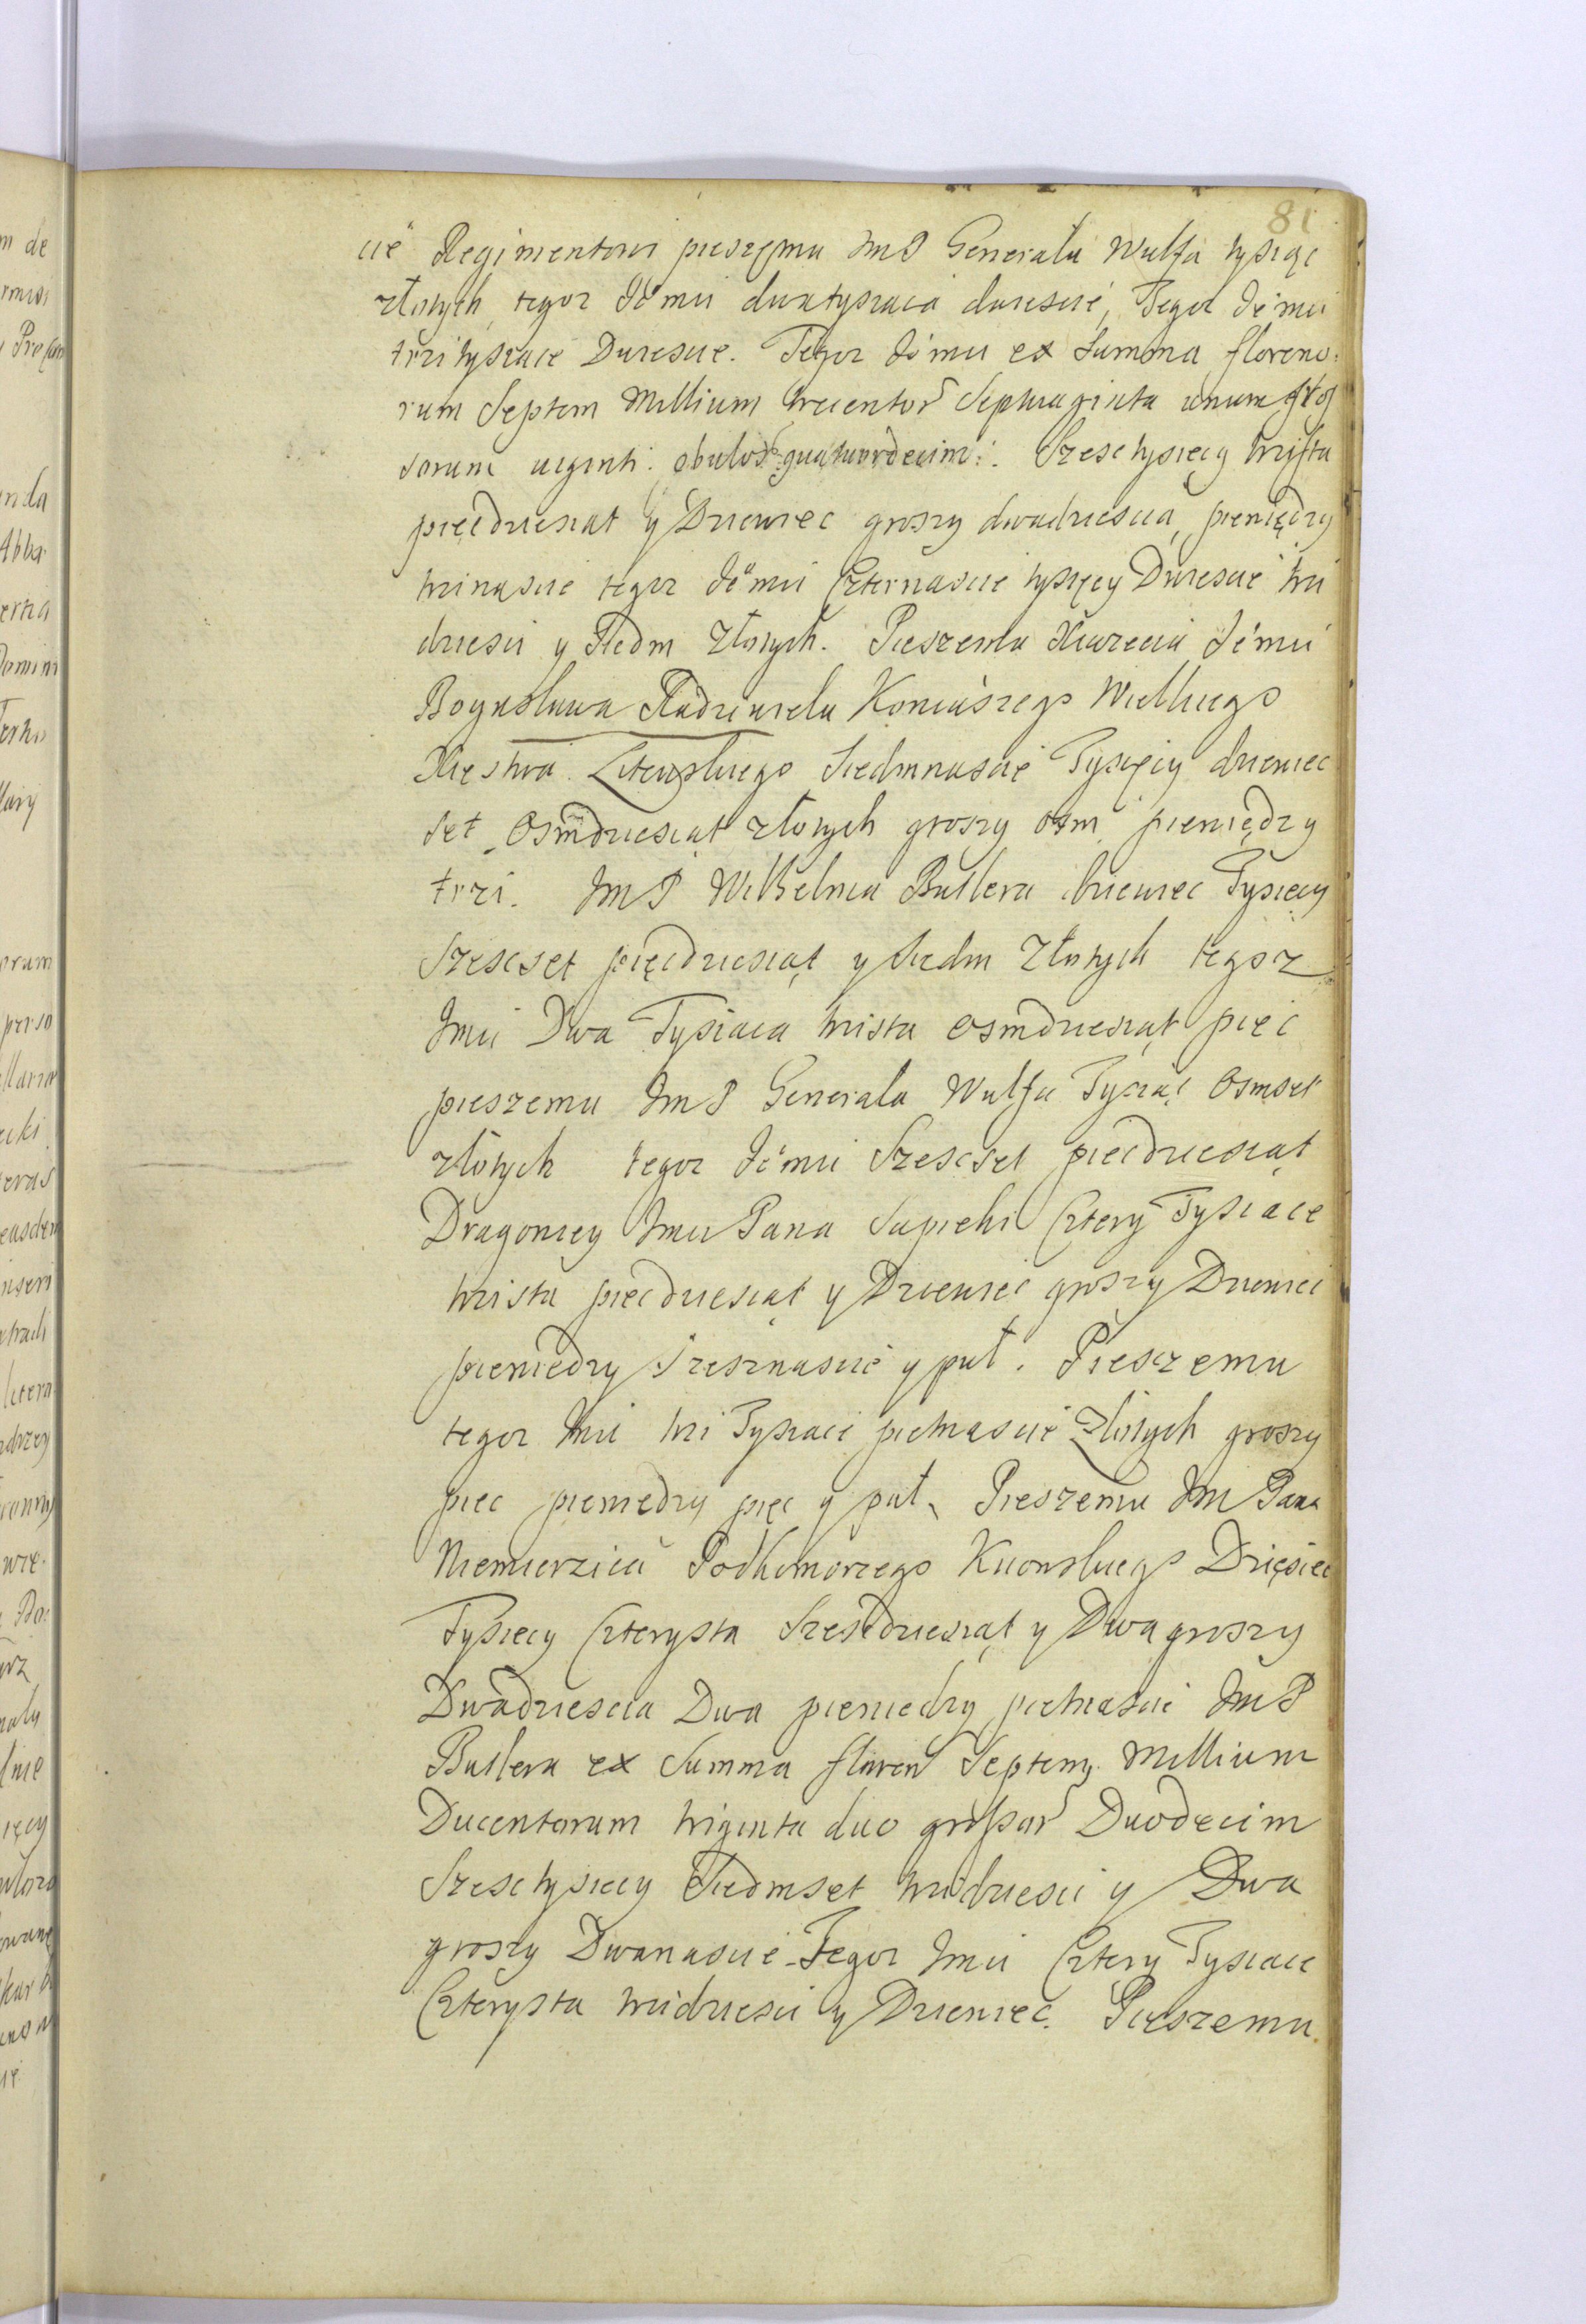 81
cie Regimentowi pieszemu JmP Generała Wulfa tysiąc
złotych, tegoz Jemci dwatysiaca dwiescie, Tegoz Jemci
trzitysiace Dwiescie. Tegoz Jemci ex Summa floreno:
rum Septem Millium trecentor Septuaginta unum gros
sorum viginti obulos quatuordecim: Szesctysięcy trista
pięcdziesiat y Dziewiec groszy dwadziescia, pieniędzy
trinascie tegoz Jemci Czternascie tysięcy Dwiescie tri
dziesci y Siedm Złotych. Pieszemu Xiazecia Jemci
Bogusława Radziwiela Koniuszego Wielkiego
Xięstwa Litewskiego Siedmnascie Tysięcy dziewiec
set Osmdziesiąt złotych groszy osm pieniędzy
trzi. JmP Wilhelma Butlera Dziewiec Tysięcy
Szescset pięcdziesiąt y Siedm Złotych tegoz
Jmci Dwa Tysiaca trista osmdziesiąt pięc
pieszemu JmP Generala Wulfa Tysiąc Osmset
złotych tegoz Jemci Szescset piecdziesiąt
Dragoniey Jmci Pana Sapiehi Cztery Tysiace
trista piecdziesiąt y Dziewiec groszy Dziewiec
pieniedzy Szesznascie y puł. Pieszemu
tegoz Jmci tri Tysiace pietnascie Złotych groszy
piec pieniedzy pięc y puł, Pieszemu Jm Pana
Niemierzica Podkomorzego Kiiowskiego Dzięsiec
Tysiecy Czterysta Szescdziesiąt y Dwa groszy
Dwadziescia Dwa pieniedzy pietnascie JmP
Butlera ex Summa floren Septem Millium
Ducentorum triginta duo grossor Duodecim
Szesctysiecy Siedmset tridziesci y Dwa
groszy Dwanascie Tegoz Jmci Cztery Tysiace
Czterysta tridziesci y Dziewiec. Pieszemu